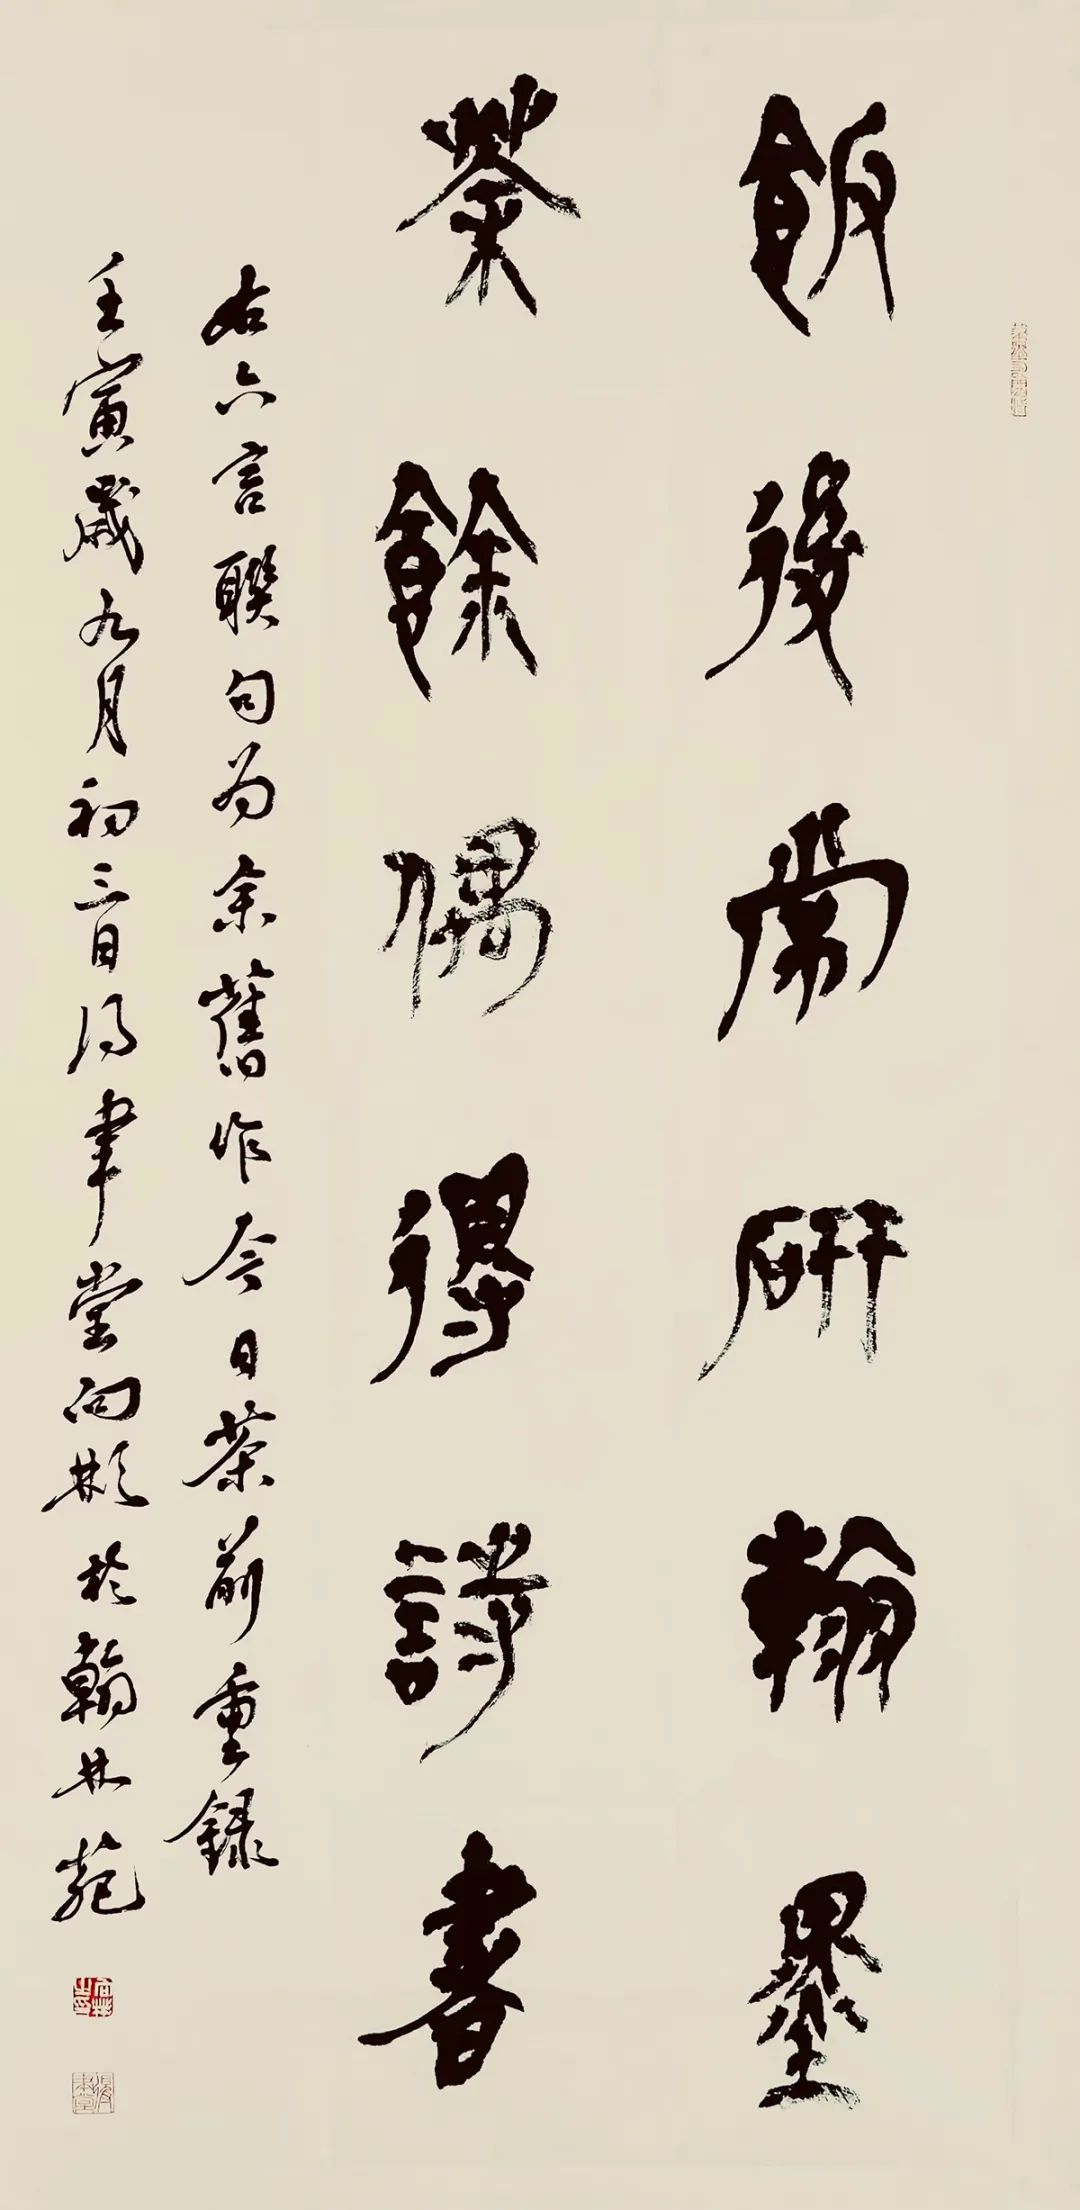 飯後常研翰墨
茶餘偶得詩書
右六言聯句为余舊作今日茶前重錄
壬寅歲九月初三日得聿堂向彬於翰林苑